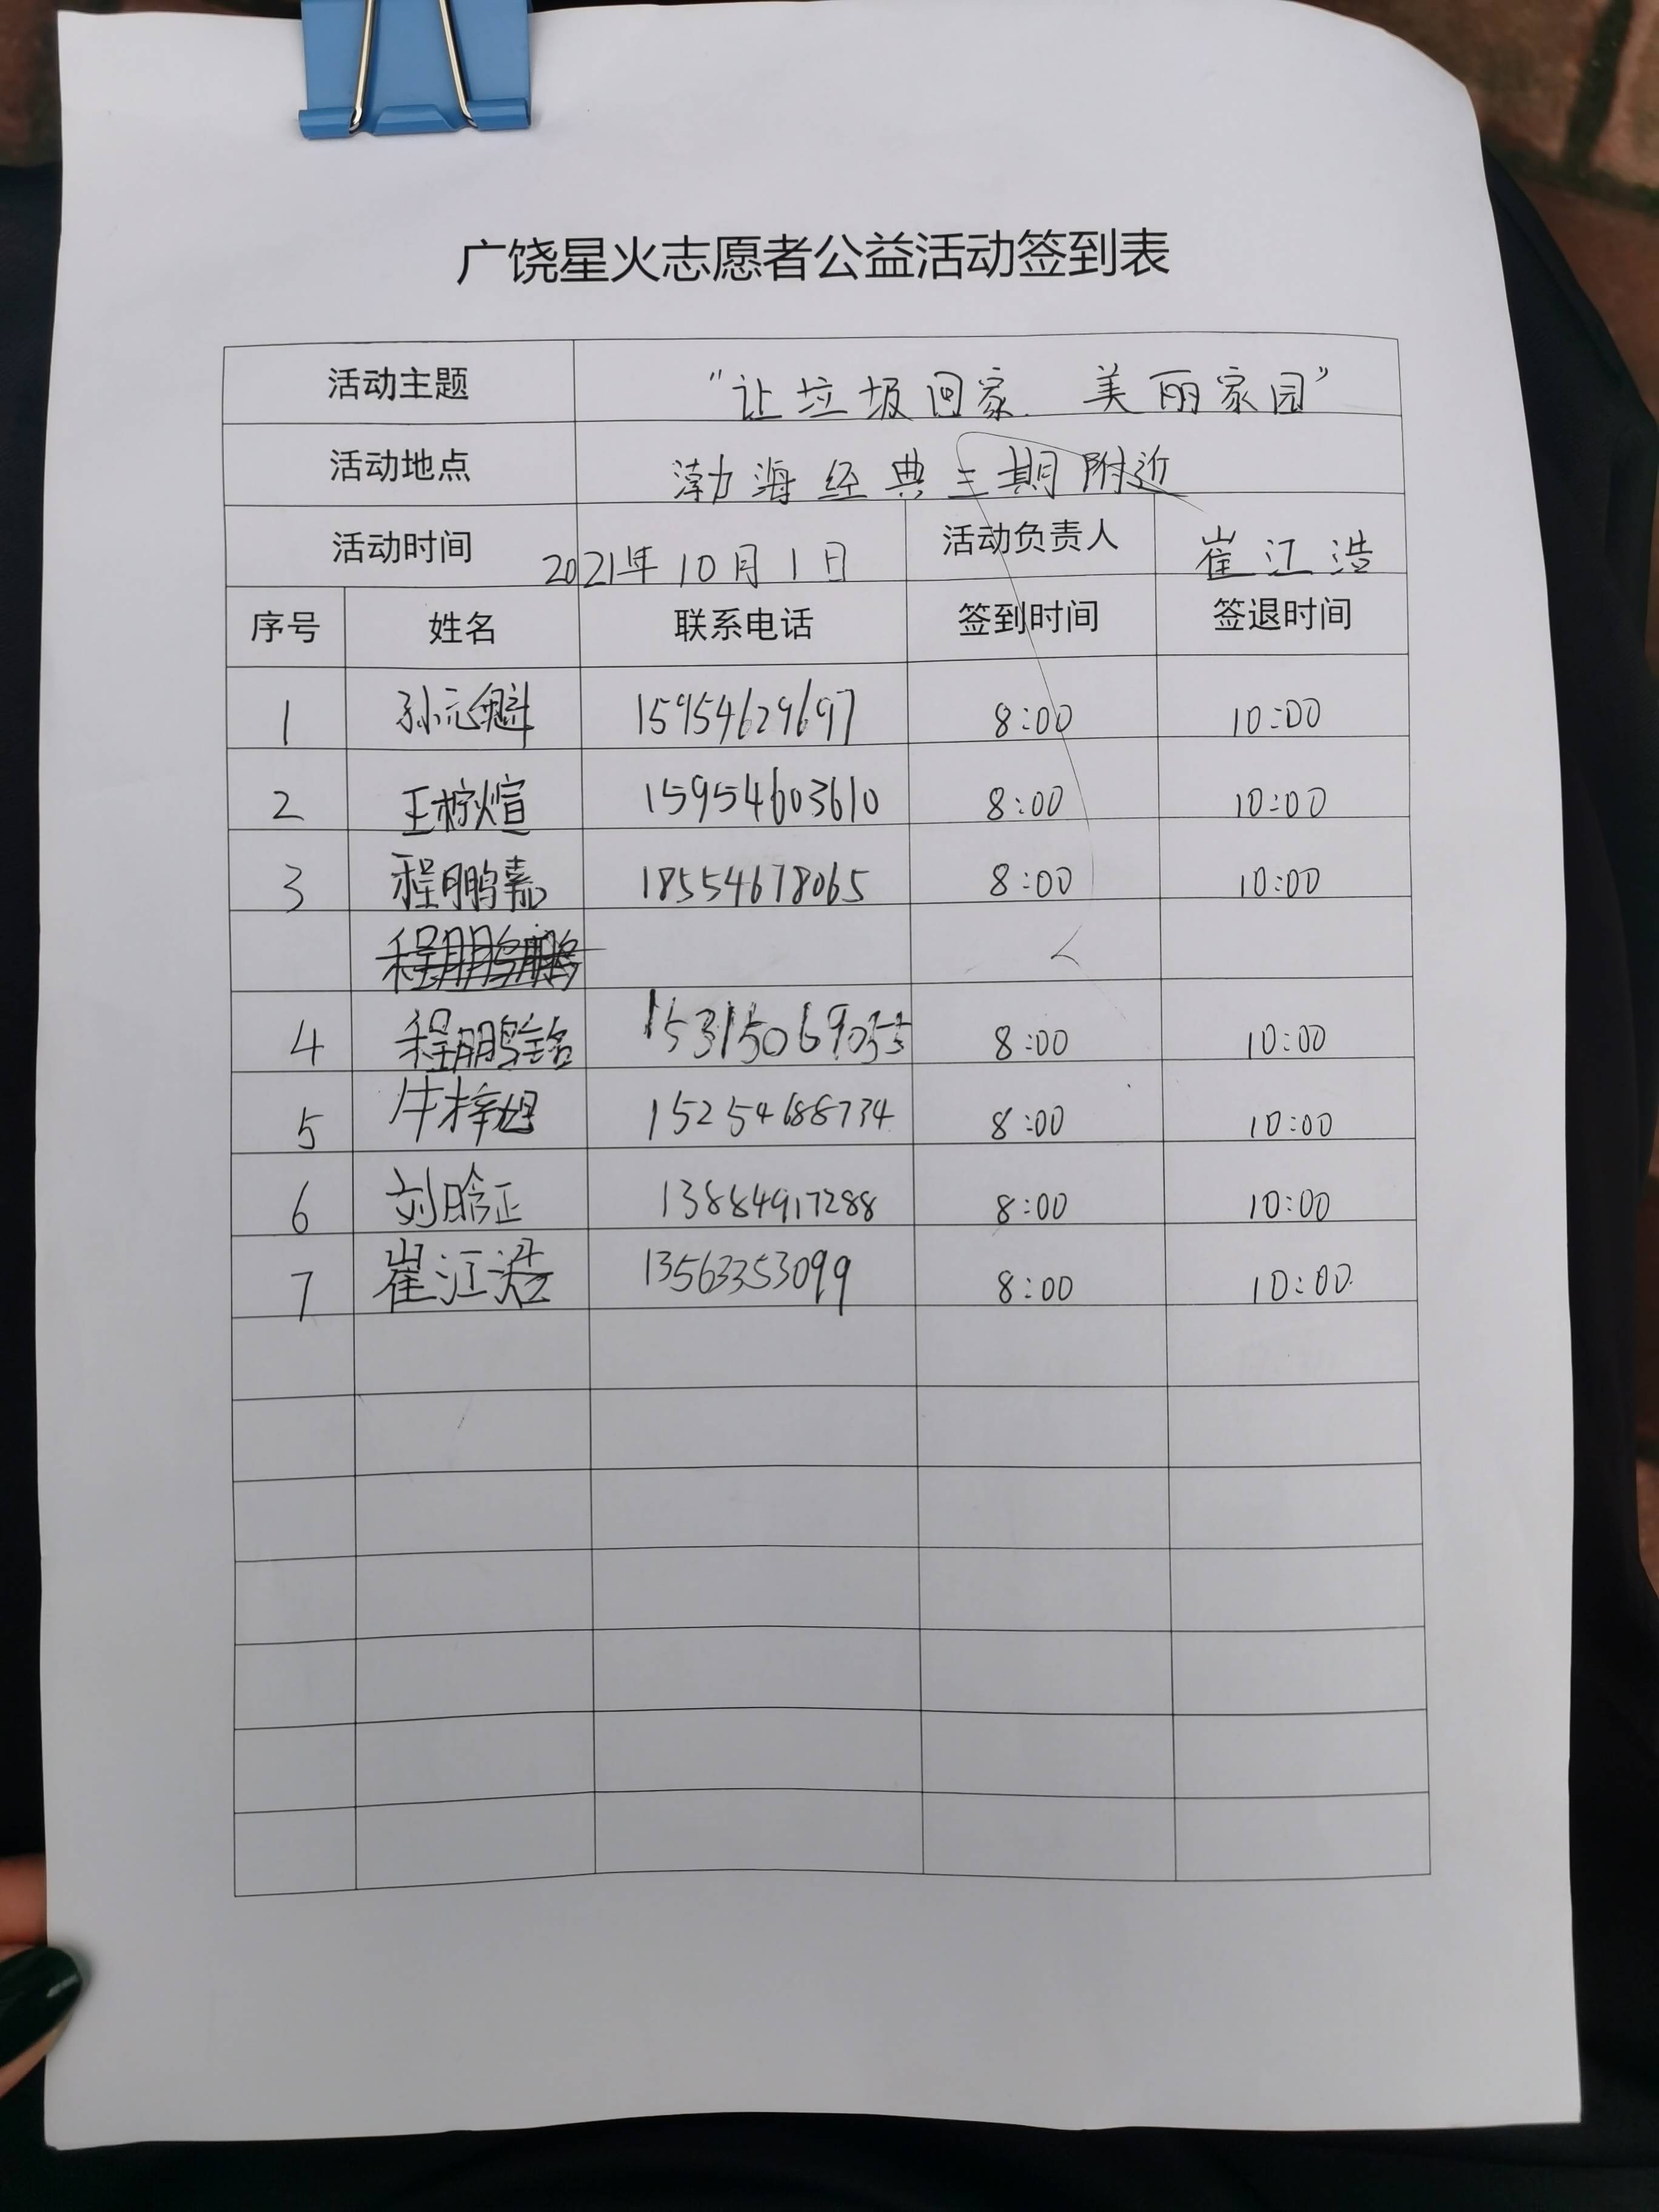 广饶星火志愿者公益活动签到表
活动主题 “让垃圾回家 美丽家园”
活动地点 渤海经典三期附近
活动时间 2021年10月1日 活动负责人 崔江浩
序号 姓名 联系电话 签到时间 签退时间
1 孙元魁 15954629697 8:00 10:00
2 王柠煊 15954603610 8:00 10:00
3 程鹏嘉 18554678065 8:00 10:00
4 程鹏铭 15315069055 8:00 10:00
5 牛梓旭 15254688734 8:00 10:00
6 刘晗正 13884917288 8:00 10:00
7 崔江浩 13563353099 8:00 10:00